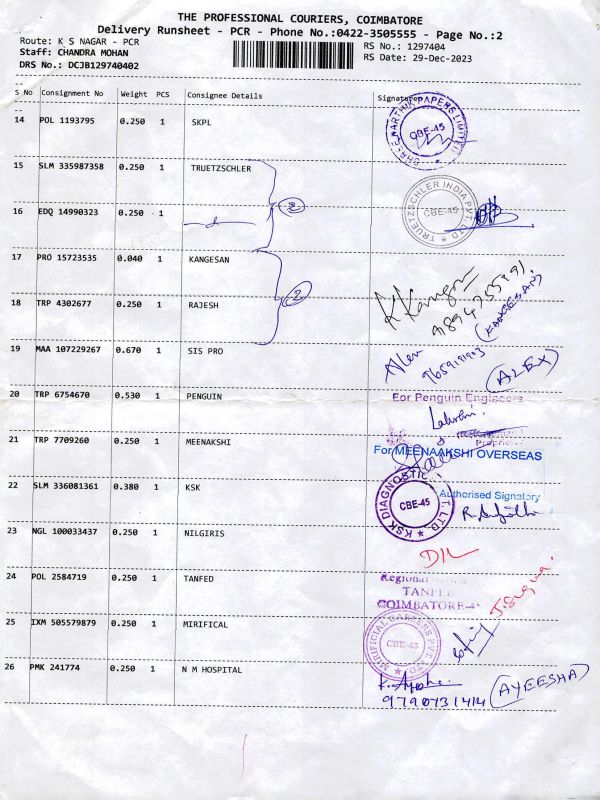 THE PROFESSIONAL COURIERS, COIMBATORE
Delivery Runsheet - PCR - Phone No.:0422-3505555 - Page No.:2
Route: K S NAGAR - PCR
RS No.: 1297404
Staff: CHANDRA MOHAN
RS Date: 29-Dec-2023
DRS No.: DCJB129740402
S No Consignment No Weight PCS Consignee Details Signature
14 POL 1193795 0.250 1 SKPL
SHREE KARTHIK PAPERS LIMITED
CBE-45
15 SLM 335987358 0.250 1 TRUETZSCHLER
16 EDQ 14990323 0.250 1
TRUETZSCHLER INDIA PVT. LTD.
CBE-45
17 PRO 15723535 0.040 1 KANGESAN
2
(KANGESAN)
18 TRP 4302677 0.250 1 RAJESH
19 MAA 107229267 0.670 1 SIS PRO
Alex
(ALEX)
20 TRP 6754670 0.530 1 PENGUIN
For Penguin Engineers
Proprietor
21 TRP 7709260 0.250 1 MEENAKSHI
For MEENAAKSHI OVERSEAS
Authorised Signatory
22 SLM 336081361 0.380 1 KSK
KSK DIAGNOSTIC PVT. LTD.
CBE-45
23 NGL 100033437 0.250 1 NILGIRIS
24 POL 2584719 0.250 1 TANFED
Regional
TANFED
COIMBATORE-4
25 IXM 505579879 0.250 1 MIRIFICAL
MIRIFICIAL CAREERS PVT. LTD.
CBE-45
26 PMK 241774 0.250 1 N M HOSPITAL
(AYEESHA)
9790731414